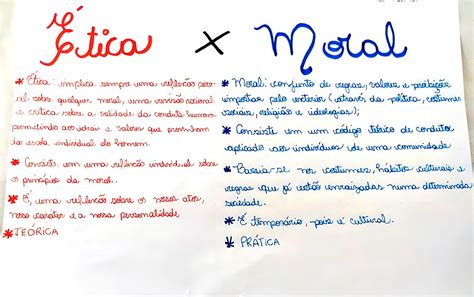 Ética × Moral
* Ética: implica sempre uma reflexão pes-
soal sobre qualquer moral, uma revisão racional
e crítica sobre a validade da conduta humana
permitindo aos ideais e valores que provenham
da escola individual do homem.
* Consiste em uma reflexão individual sobre
os princípios da moral.
* É uma reflexão sobre os nossos atos,
nosso carater e a nossa personalidade
* TEÓRICA
* Moral: conjunto de regras, valores e proibições
impostas pelo exterior (através da política, costumes
sociais, religião e ideologias);
* Consiste em um código teórico de condutas
aplicado aos indivíduos de uma comunidade
* Baseia-se nos costumes, hábitos culturais e
regras que já estão enraizadas numa determinada
sociedade.
* É temporário, pois é cultural.
* PRÁTICA